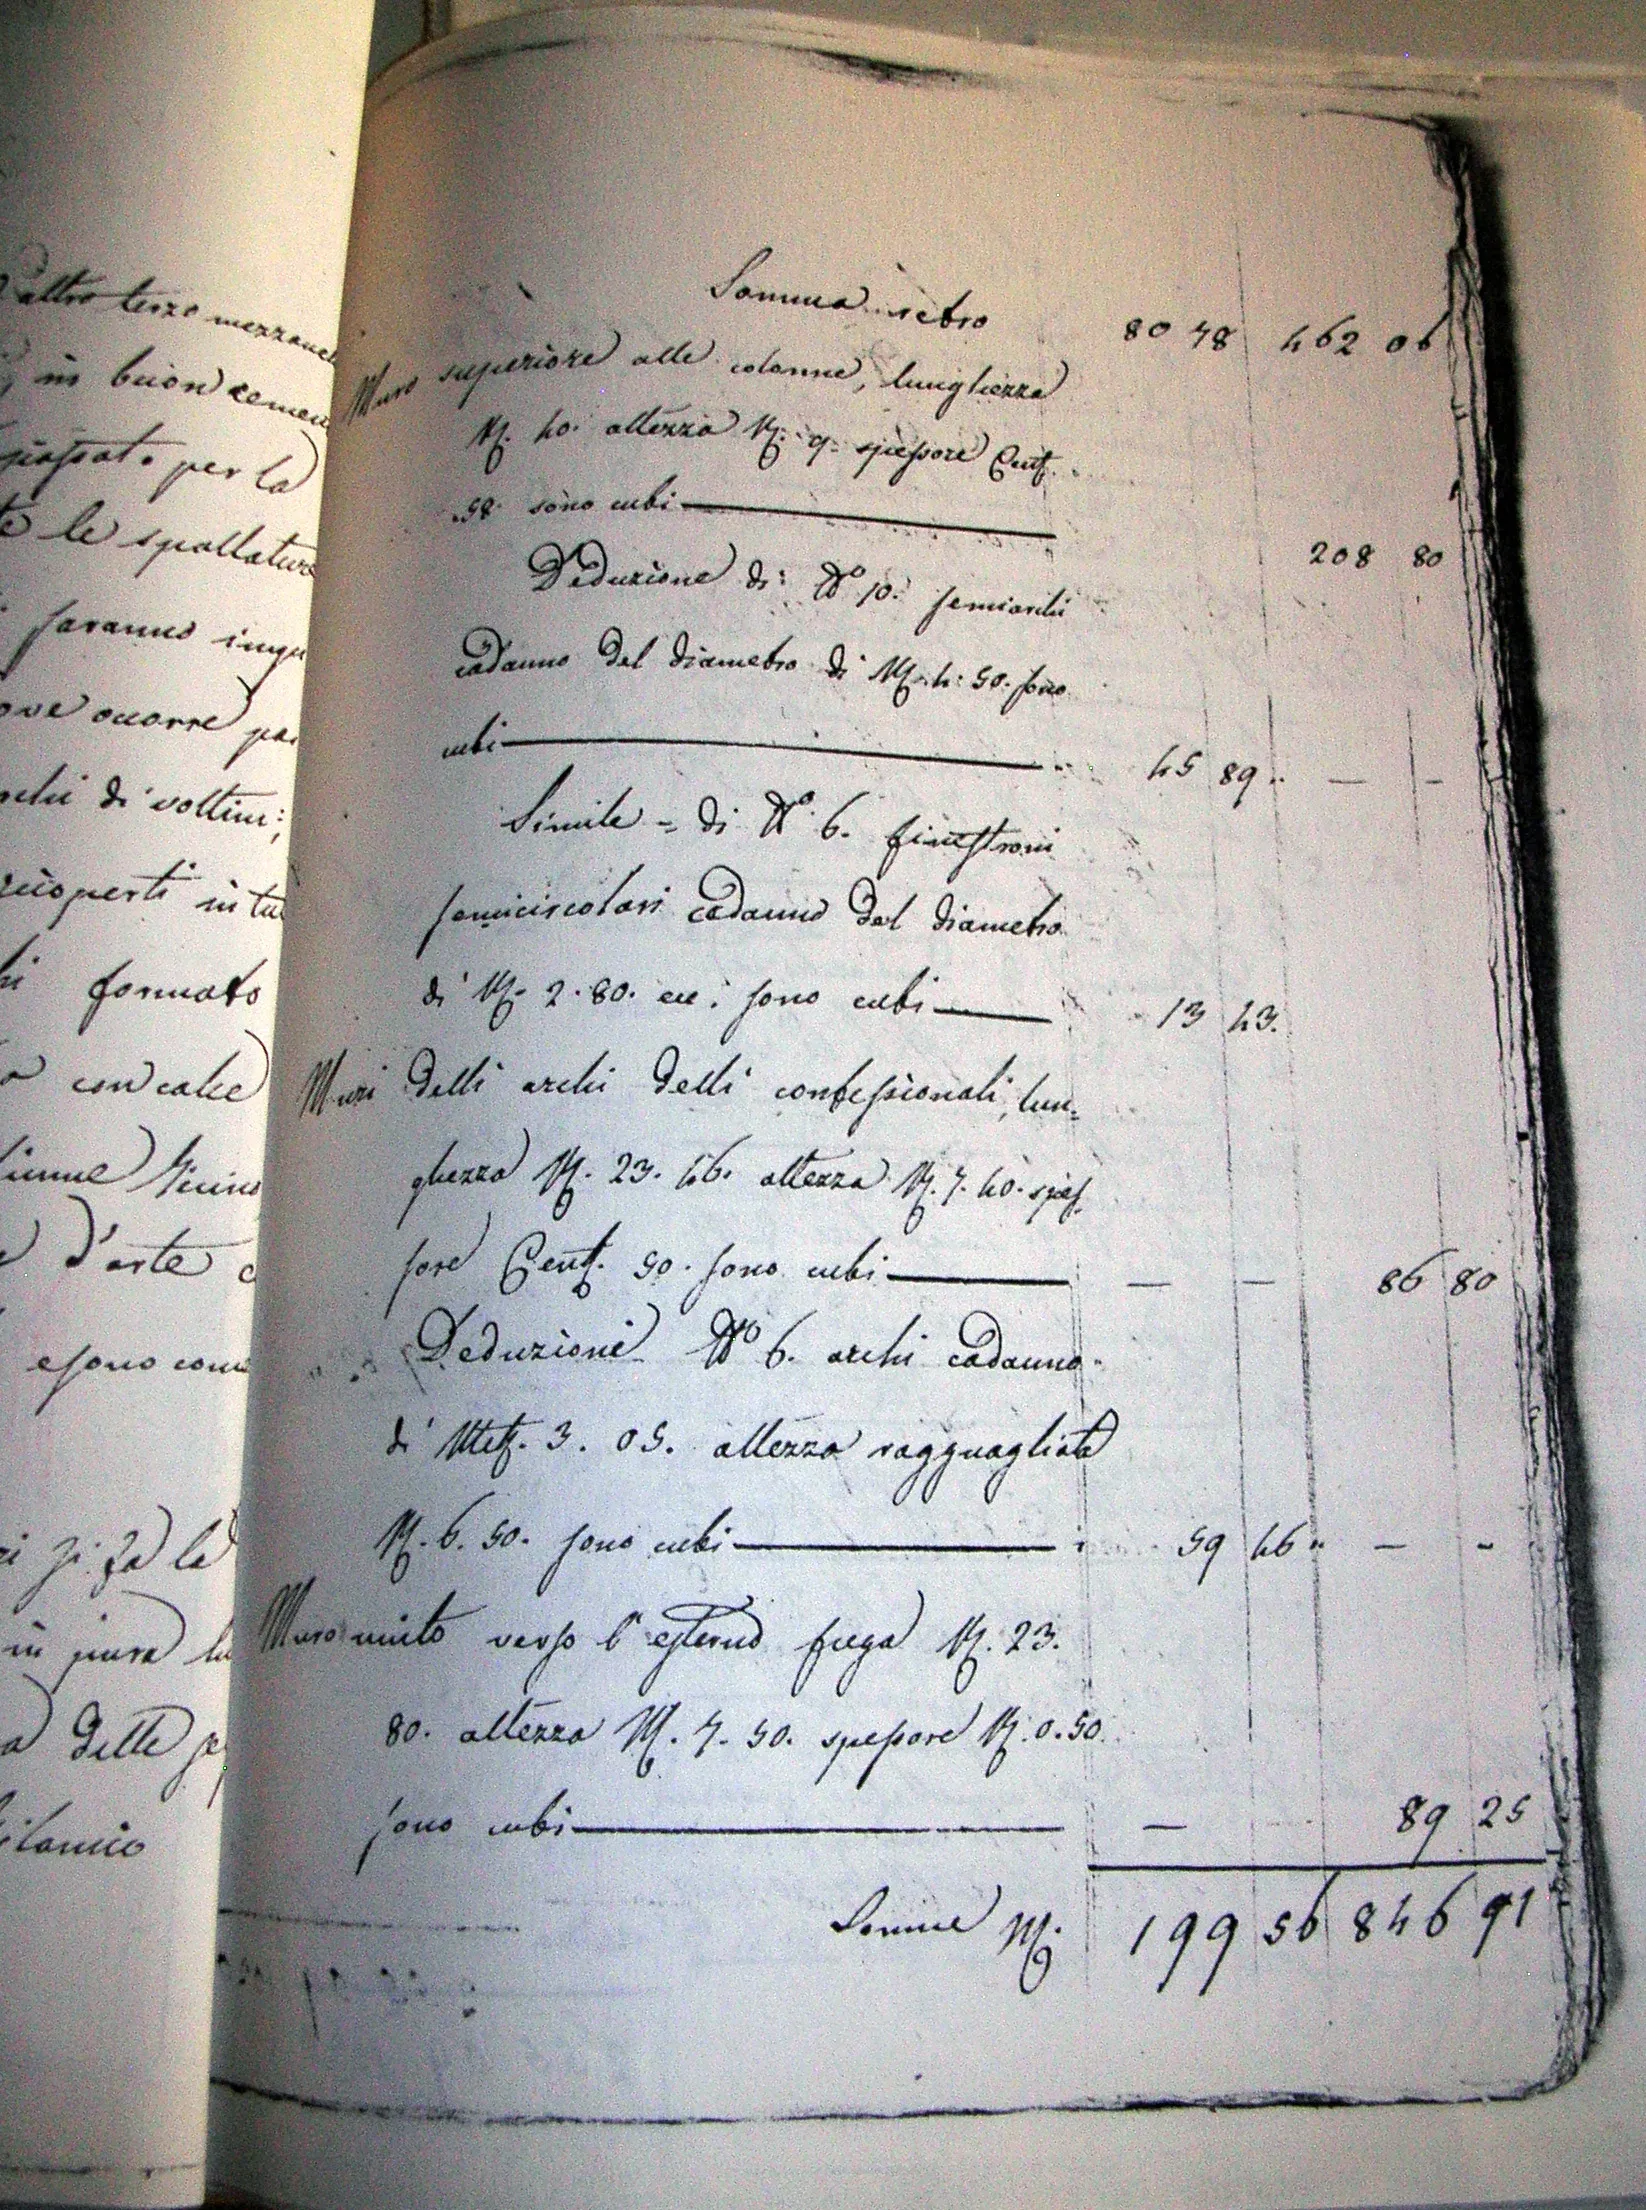 altro terzo mezzane
in buon cemen
per la
le spallature
saranno
ove occorre
archi di voltini;
ricoperti in tu
formato
con calce
d'arte
e sono
si fa la
in pura
delle
Somma retro 80 78 462 06
Muro superiore alle colonne, lunghezza
M. 40. altezza M. 9. spessore Cent.
58. sono cubi 208 80
Deduzione di N.o 10. semiarchi
cadauno del diametro di M. 4. 50. sono
cubi 45 89 — —
Simile = di N.o 6. finestroni
semicircolari cadauno del diametro
di M. 2. 80. sono cubi 13 43.
Muri delli archi delli confessionali, lun=
ghezza M. 23. 46. altezza M. 7. 40. spes=
sore Cent. 50. sono cubi — — 86 80
Deduzione N.o 6. archi cadauno
di Met. 3. 05. altezza ragguagliata
M. 6. 50. sono cubi 59 46 — -
Muro unito verso l'esterno fuga M. 23.
80. altezza M. 7. 50. spessore M. 0. 50.
sono cubi — 89 25
Somme M. 199 56 846 91